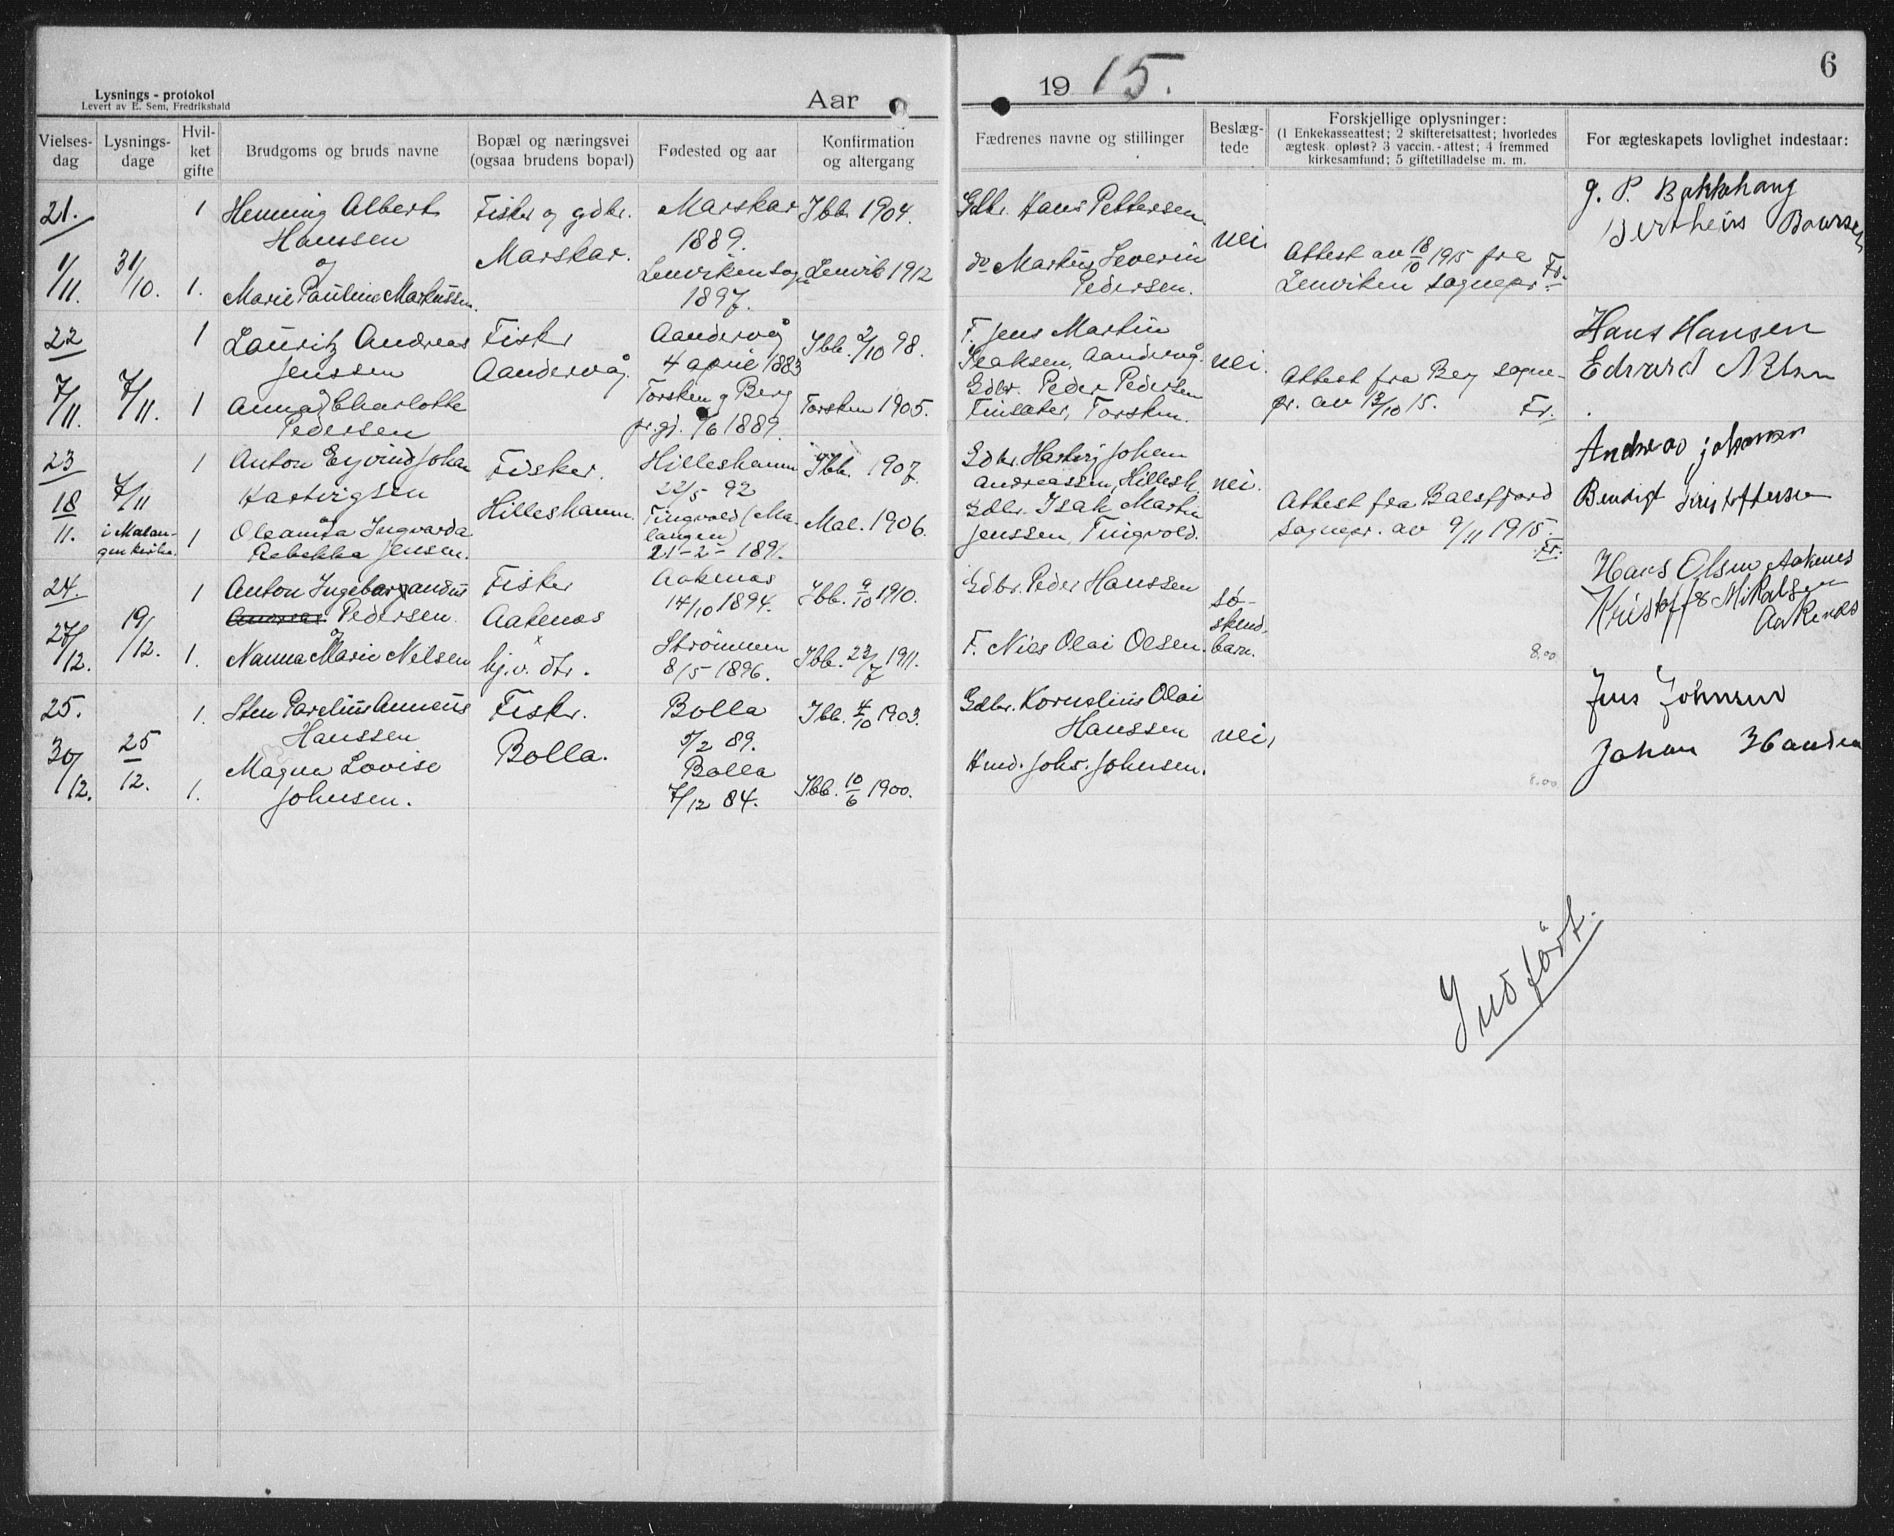 Lysnings - protokol
Levert av E. Sem, Fredrikshald
Aar
1915.
6
Vielses-dag
Lysnings-dage
Hvilket gifte
Brudgoms og bruds navne
Bopæl og næringsvei (ogsaa brudens bopæl)
Fødested og aar
Konfirmation og altergang
Fædrenes navne og stillinger
Beslæg-tede
Forskjellige oplysninger:
(1 Enkekasseattest; 2 skifteretsattest; hvorledes
ægtesk. opløst? 3 vaccin.-attest; 4 fremmed
kirkesamfund; 5 giftetilladelse m. m.
For ægteskapets lovlighet indestaar:
21. 1 Henning Albert Fisker og gdbr. Marskar Ibb. 1904. Gdbr. Hans Pettersen
Hanssen Marskar. 1889. nei.
og
1/11. 31/10. 1. Marie Pauline Markussen Lenviken sogn Lenvik 1912 do Markus Severin Attest av 18/10 1915 fra
1897. Pedersen. Lenviken sognepr. Fr.
22 1 Lauritz Andreas Fisker Aandervåg Ibb. 2/10 98. F. Jens Martin Hans Hansen
Jenssen Aandervåg. 4 april 1883 Isaksen, Aandervåg. nei. Edvard
7/11. 7/11. 1 Anna Charlotte Torsken og Berg Torsken 1905. Gdbr. Peder Pedersen Attest fra Berg sogne-
Pedersen pr.gj. 1/6 1889. Finsæter, Torsken. pr. av 13/10 15. Fr.
23 1 Anton Eyvind Johan Fisker. Hilleshamn Ibb. 1907. Gdbr. Hartvig Johan Andreas Johansen
18 7/11 Hartvigsen Hilleshamn. 22/5 92 Andreassen, Hillesh. nei. Bendigt
11. i Malan-gen kirke. 1 Oleanna Ingvarda Tingvold (Ma- Mal. 1906. Gdbr. Isak Martin Attest fra Balsfjord
Rebekka Jensen. langen) Jenssen Tingvold. sognepr. av 9/11 1915.
21-2-189. Fr.
24. 1 Anton Ingebar Fisker Aakenæs Ibb. 9/10 1910. Gdbr. Peder Hanssen Hans Olsen Aaknes
Pedersen. Aakenæs 14/10 1894. sø-skend.barn. Kristoffe Mikalsen
og Aaknes
27/12. 19/12. 1. Nanna Marie Nelsen hj.v. dtr. Strømmen Ibb. 23/7 1911. F. Nils Olai Olsen. 8.00
8/5 1896.
25. 1. Sten Parelius Anneus Fisker. Bolla Ibb. 4/10 1903. Gdbr. Kornelius Olai Jens Johnsen
Hanssen Bolla. 5/2 89. Hanssen nei.
30/12. 25/12. 1. Magna Lovise Bolla Ibb. 10/6 1900. Hmd. Johs. Johnsen. 8.00 Johan
Johnsen. 7/12 84.
Indført.